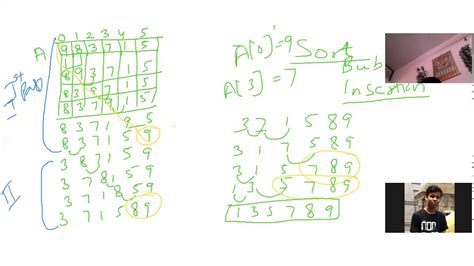 0 1 2 3 4 5
A 9 8 3 7 1 5
8 9 3 7 1 5
8 3 9 7 1 5
8 3 7 9 1 5
8 3 7 1 9 5
8 3 7 1 5 9
3 8 7 1 5 9
3 7 8 1 5 9
3 7 1 8 5 9
3 7 1 5 8 9
Ist Pass
II
A[0]=9
A[3]=7
Sort
Bub
Insertion
3 7 1 5 8 9
3 1 7 5 8 9
3 1 5 7 8 9
1 3 5 7 8 9
1 3 5 7 8 9